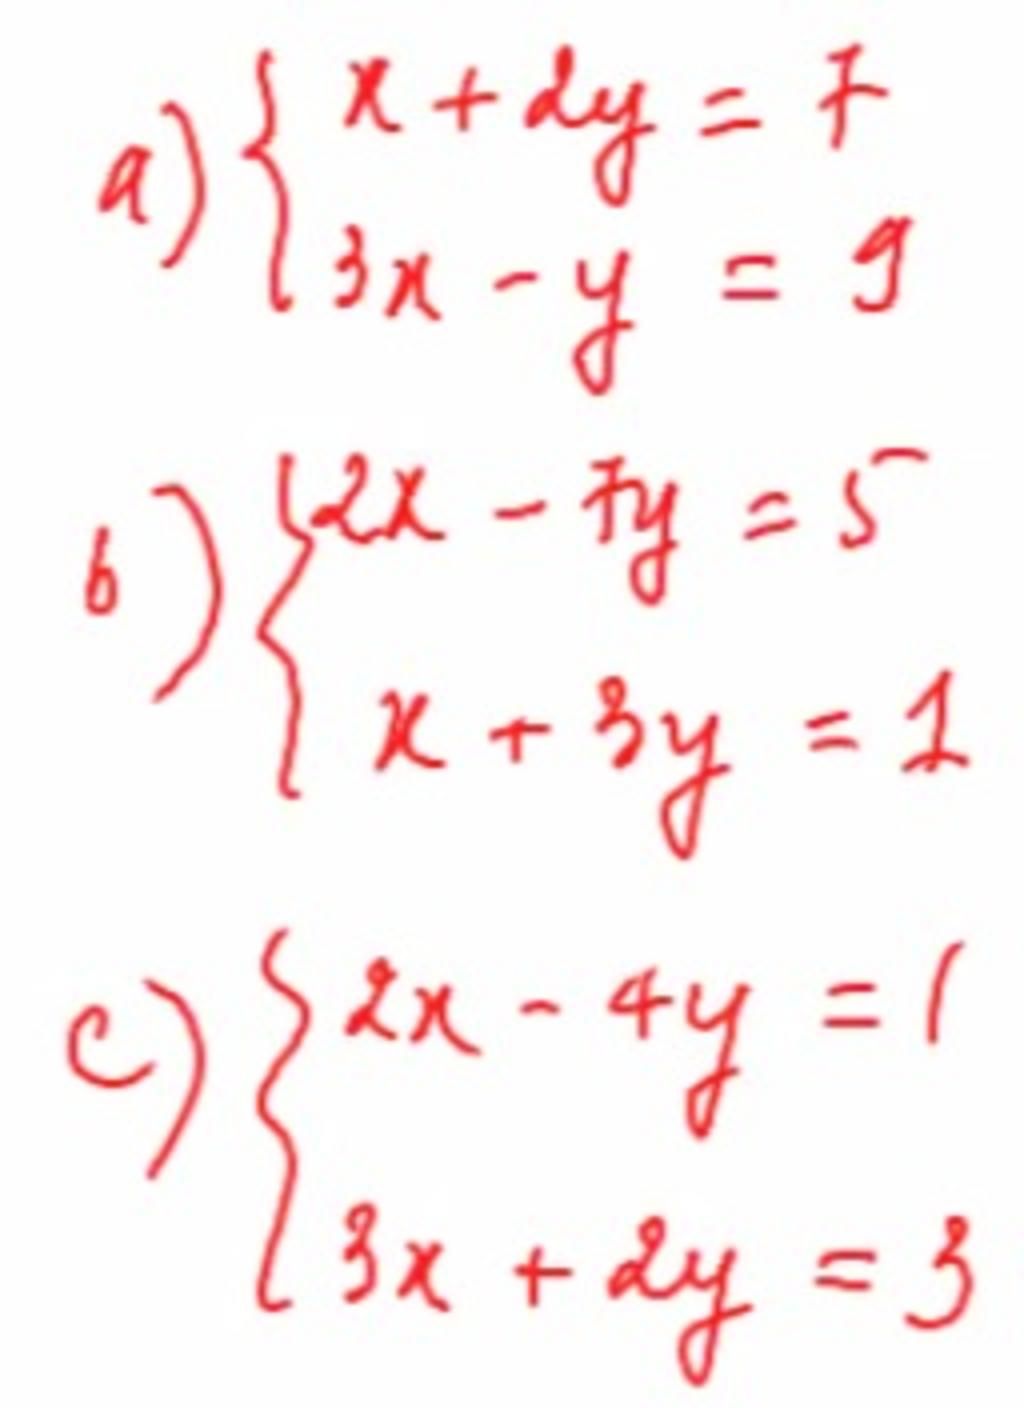 a) { x + 2y = 7
3x - y = 9
b) { 2x - 7y = 5
x + 3y = 1
c) { 2x - 4y = 1
3x + 2y = 3